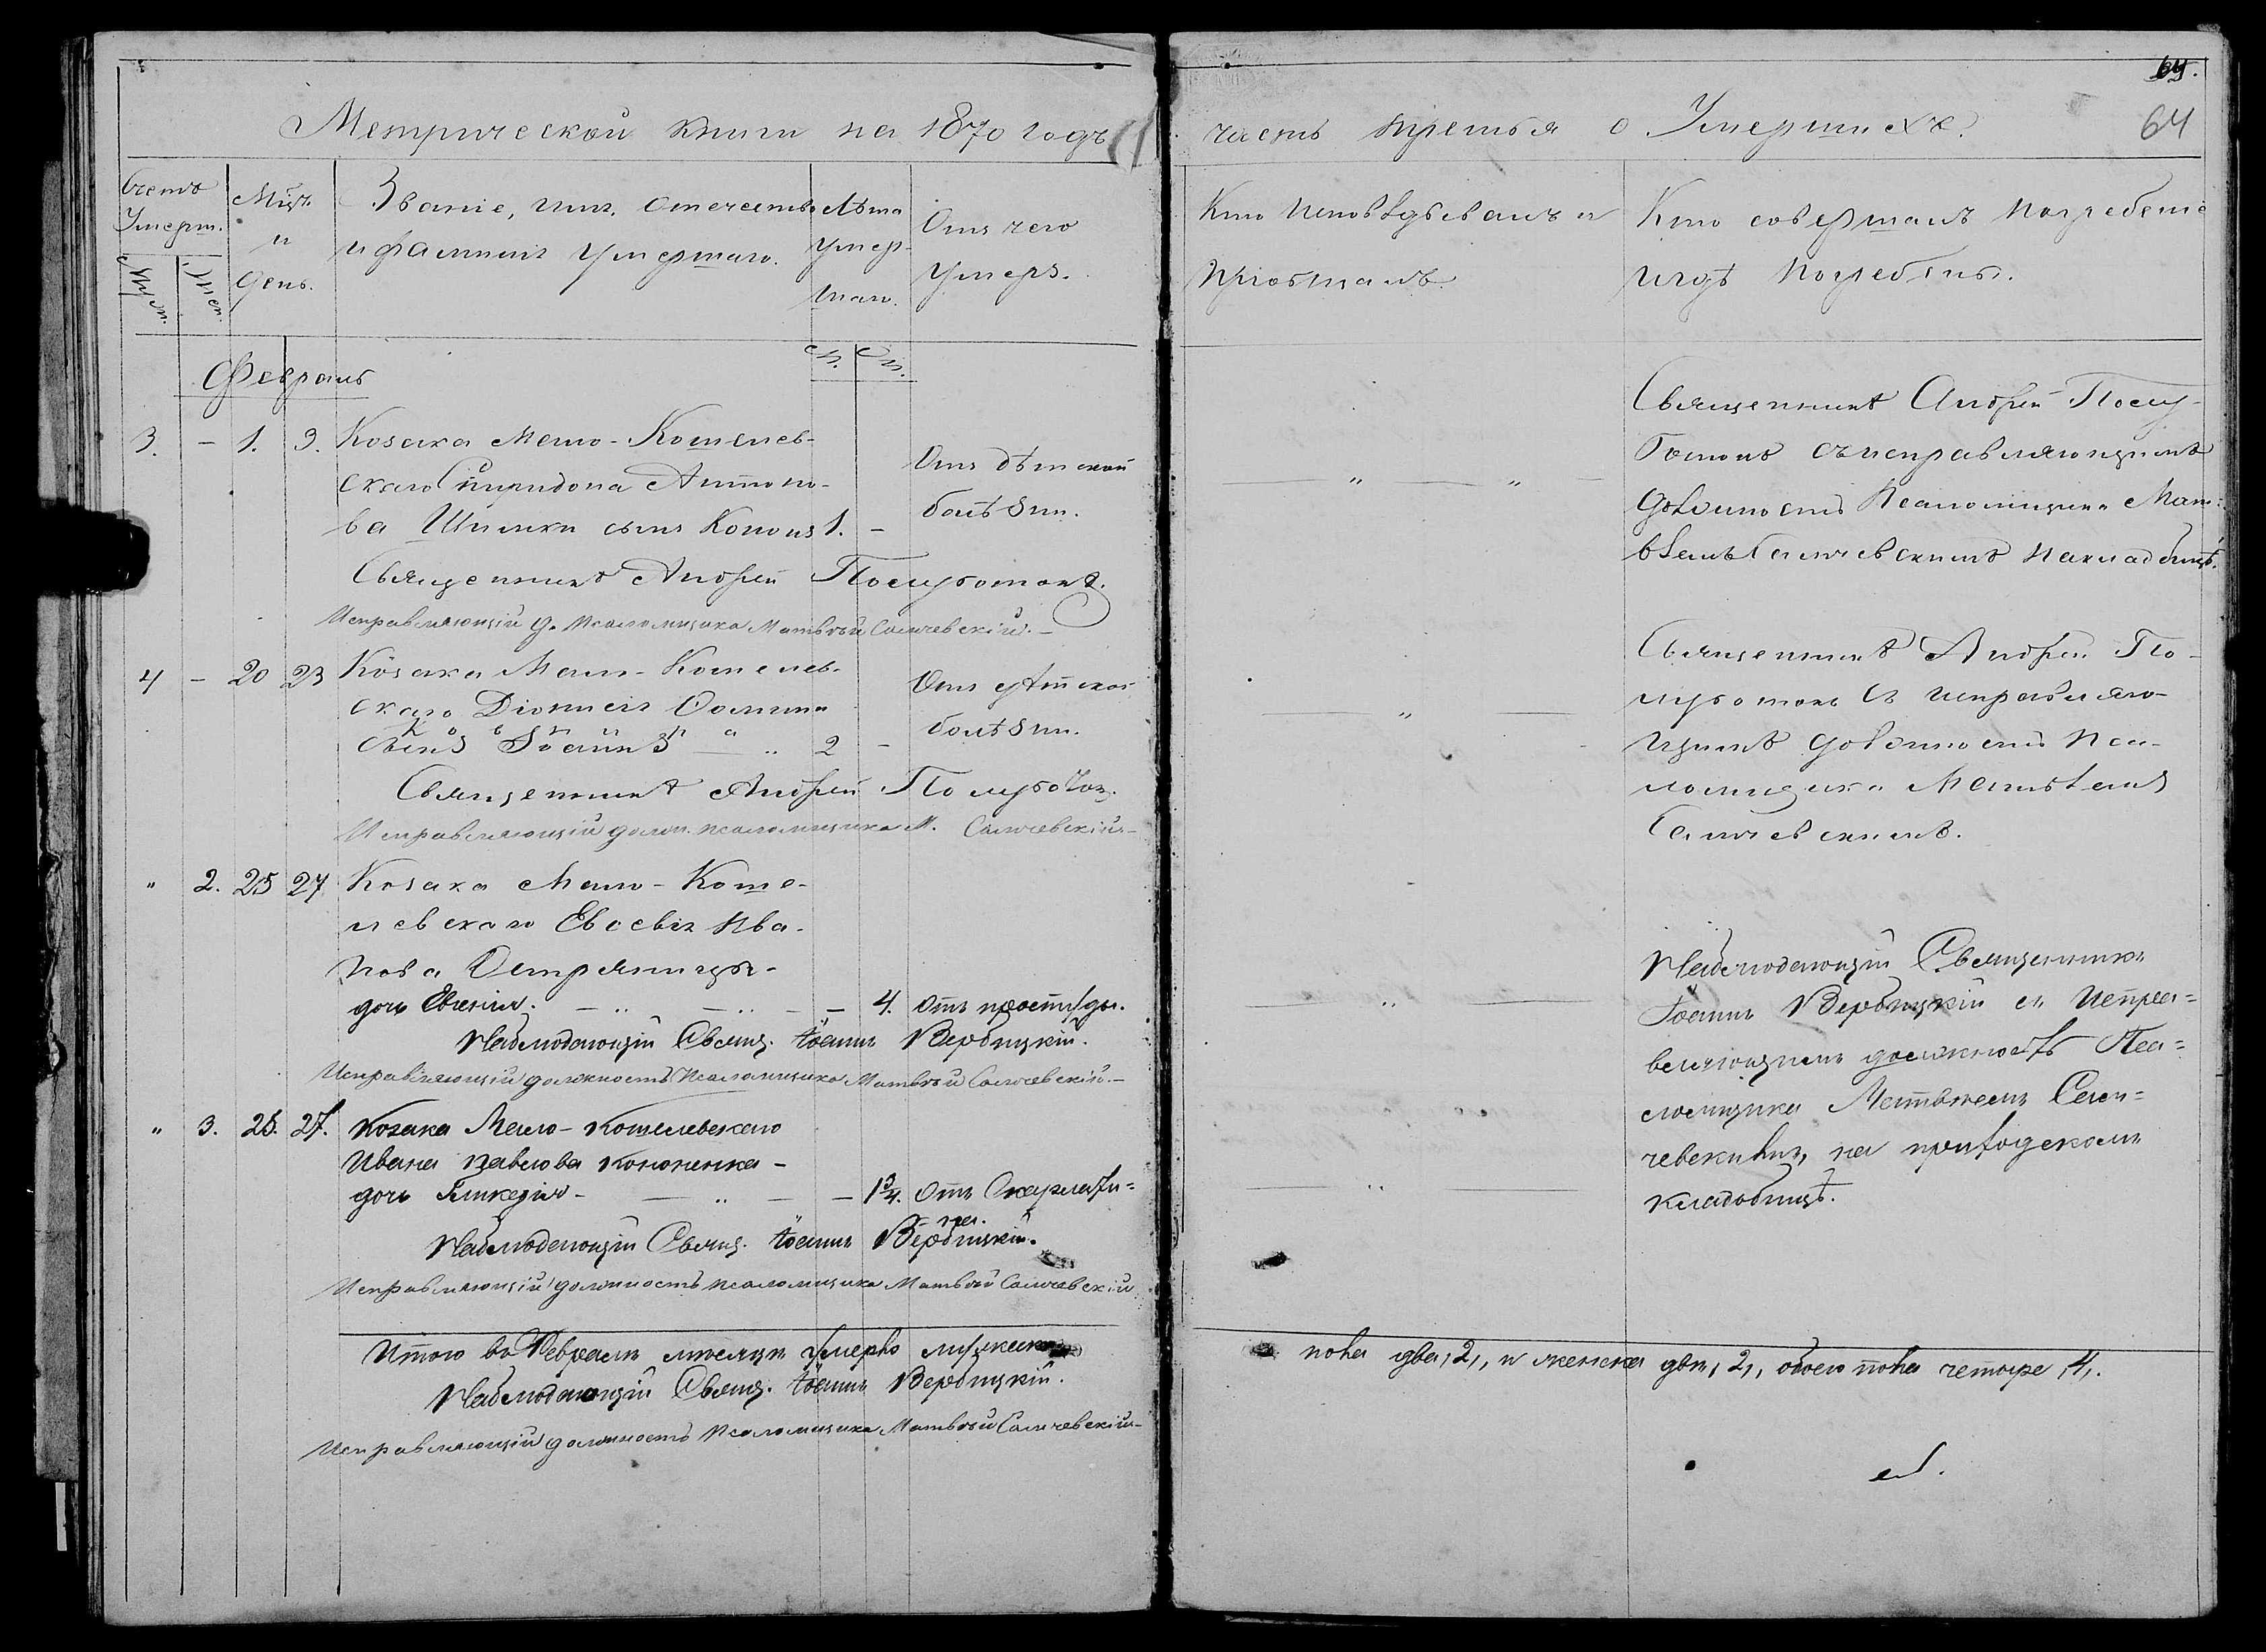 Метрической книги на 1870 годъ
часть третья о Умершихъ.
64.
64
Счетъ Умерш.
Муж.
Жен.
Мѣц.
и
день.
Званіе, имя, отечество
и фамилія умершаго.
Лѣта
умер-
шаго.
М.
Ж.
Отъ чего
умеръ.
Кто исповѣдывалъ и
пріобщалъ
Кто совершалъ погребеніе
и гдѣ погребены.
Февраль
3. – 1. 3. Козака Мало-Кошелев-
скаго Спиридона Антоно-
ва Шпилки сынъ Кононъ 1. –
Отъ дѣтской
болѣзни.
Священникъ Андрей Полуботокъ.
Исправляющій д. псаломщика Матвѣй Саличевскій. –
— „ — „ —
Священникъ Андрей Полу-
ботокъ съ исправляющимъ
должность Псаломщика Мат-
вѣемъ Саличевскимъ на кладбищѣ.
4 – 20 23 Козака Мало-Кошелев-
скаго Діонисія Фомина
сынъ Іоаннъ — „ 2 –
Отъ дѣтской
болѣзни.
Священникъ Андрей Полуботок.
Исправляющій должн. псаломщика М. Саличевскій –
— „ —
Священникъ Андрей По-
луботокъ съ исправляю-
щимъ должность Пса-
ломщика Матвѣемъ
Саличевскимъ.
„ 2. 25 27 Козака Мало-Коше-
левскаго Евсевія Ива-
нова Остряницы –
дочь Евгенія. — „ — „ — 4. отъ простуды.
Наблюдающій Свящ. Іоаннъ Вербицкій.
Исправляющій должность Псаломщика Матвѣй Саличевскій. –
— „ —
Наблюдающій Священникъ
Іоаннъ Вербицкій съ испра=
вляющимъ должность Пса=
ломщика Матвѣемъ Сали=
чевскимъ, на приходскомъ
кладбищѣ.
„ 3. 25. 27. Козака Мало-Кошелевскаго
Ивана Павлова Кононенка –
дочь Гликерія – — „ — — 1 3/4. отъ Скарлати=
на.
Наблюдающій Свящ. Іоаннъ Вербицкій.
Исправляющій должность псаломщика Матвѣй Саличевскій
— „ —
Итого въ Февралѣ мѣсяцѣ умерло мужеска
пола два, 2, и женска двѣ, 2, обоего пола четыре, 4,.
Наблюдающій Свящ. Іоаннъ Вербицкій.
Исправляющій должность Псаломщика Матвѣй Саличевскій –